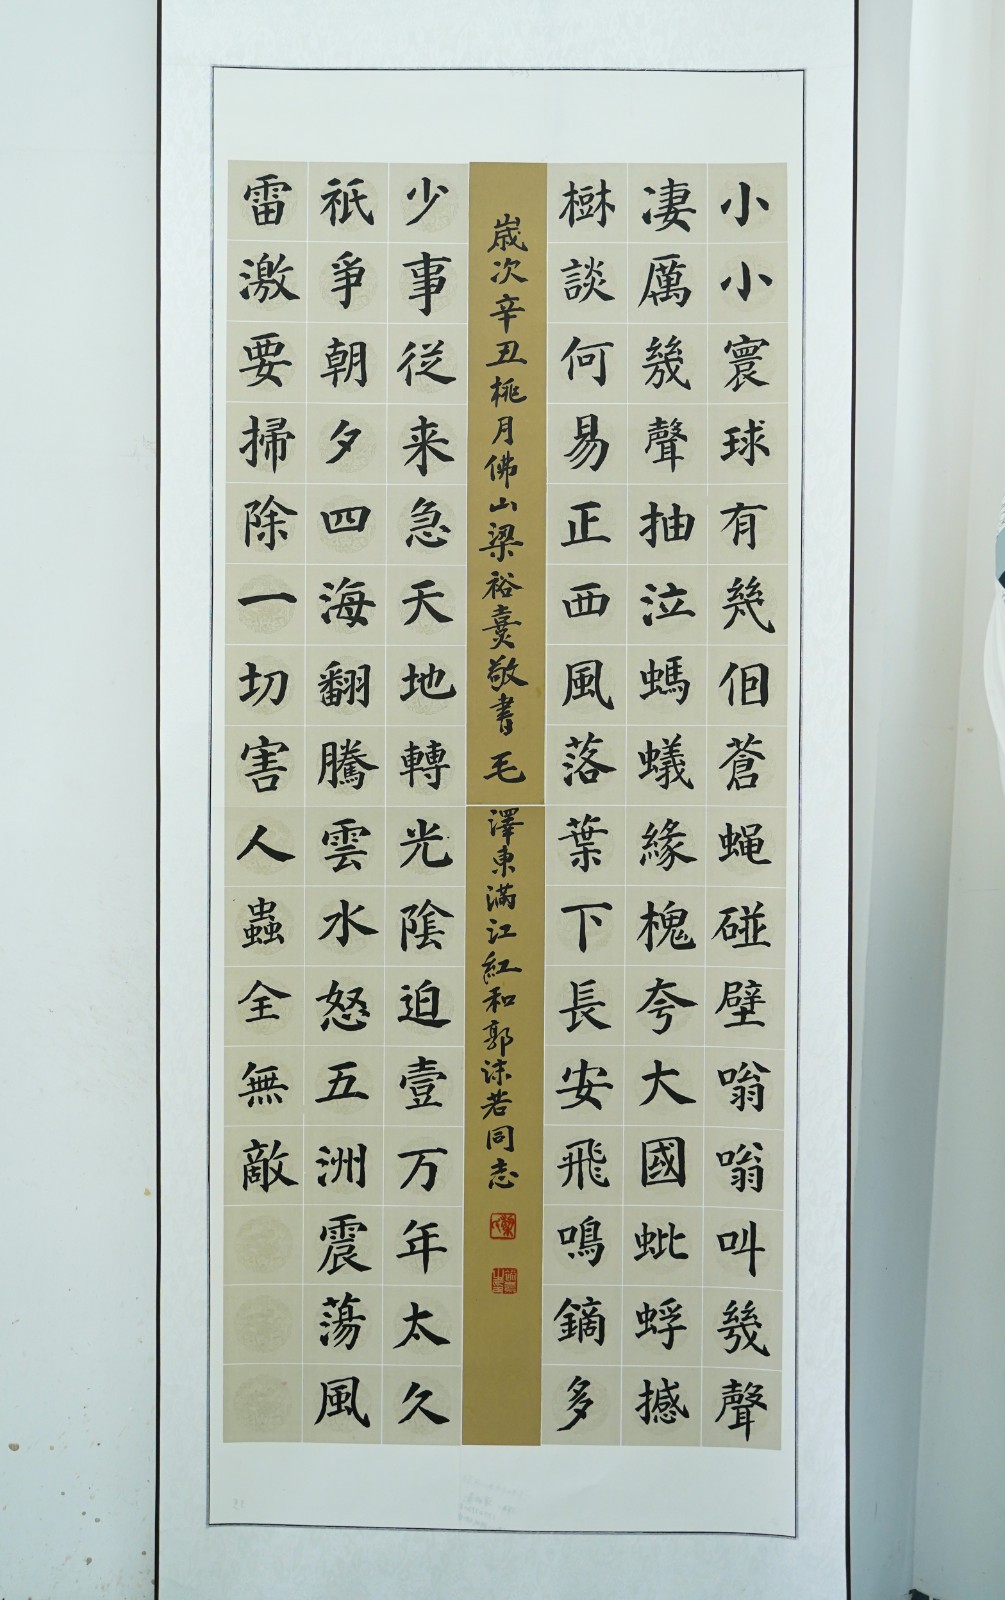 小小寰球有幾佪蒼蝇碰壁嗡嗡叫幾聲
凄厲幾聲抽泣螞蟻緣槐夸大國蚍蜉撼
樹談何易正西風落葉下長安飛鳴鏑多
歲次辛丑桃月佛山梁裕敬書毛澤東滿江紅和郭沫若同志
少事従来急天地轉光陰迫壹万年太久
衹爭朝夕四海翻騰雲水怒五洲震蕩風
雷激要掃除一切害人蟲全無敵